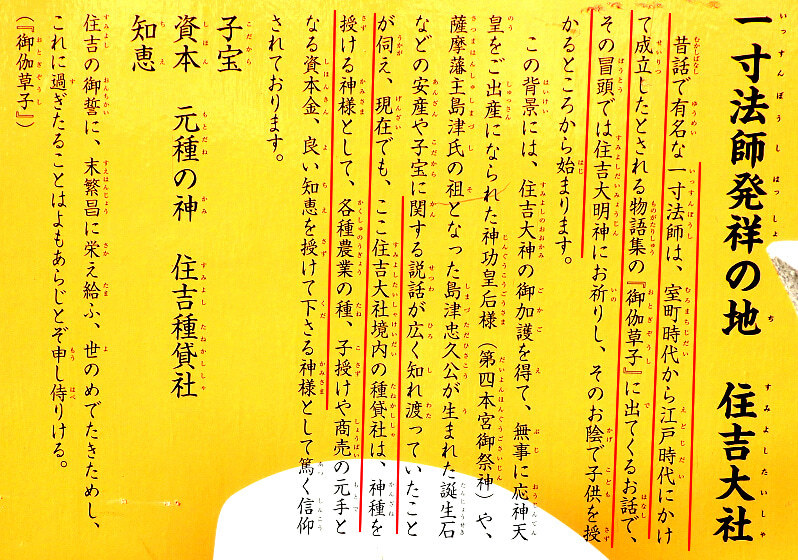 一寸法師発祥の地　住吉大社
昔話で有名な一寸法師は、室町時代から江戸時代にかけ
て成立したとされる物語集の『御伽草子』に出てくるお話で、
その冒頭では住吉大明神にお祈りし、そのお陰で子供を授
かるところから始まります。
この背景には、住吉大神の御加護を得て、無事に応神天
皇をご出産になられた神功皇后様（第四本宮御祭神）や、
薩摩藩主島津氏の祖となった島津忠久公が生まれた誕生石
などの安産や子宝に関する説話が広く知れ渡っていたこと
が伺え、現在でも、ここ住吉大社境内の種貸社は、神種を
授ける神様として、各種農業の種、子授けや商売の元手と
なる資本金、良い知恵を授けて下さる神様として篤く信仰
されております。
子宝
資本　元種の神　住吉種貸社
知恵
住吉の御誓に、末繁昌に栄え給ふ、世のめでたきためし、
これに過ぎたることはよもあらじとぞ申し侍りける。
（『御伽草子』）